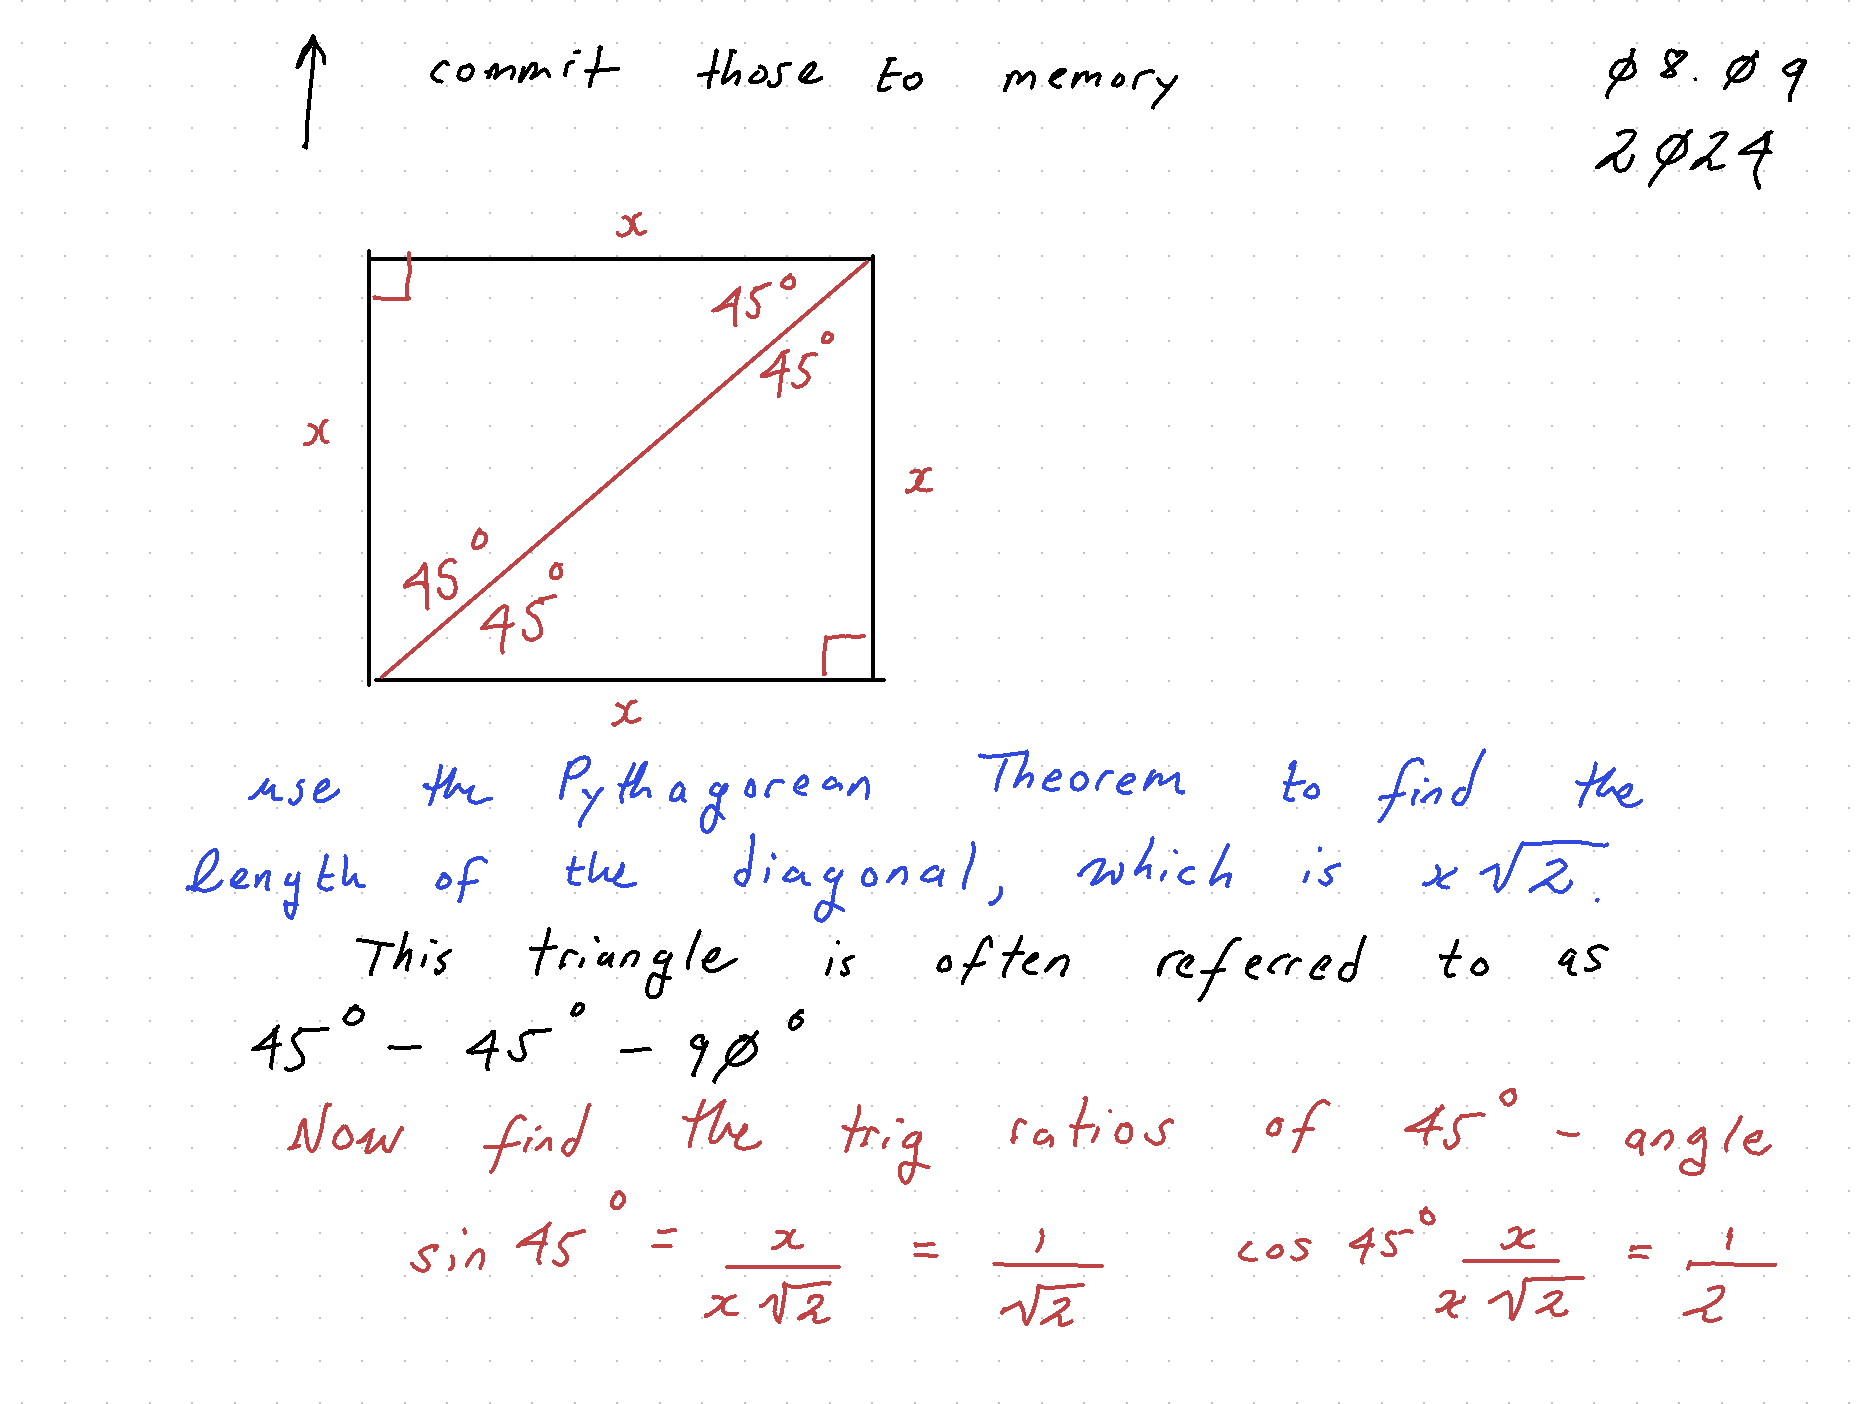 commit those to memory
08.09
2024
x
45°
45°
x
x
45°
45°
x
use the Pythagorean Theorem to find the
length of the diagonal, which is x√2.
This triangle is often referred to as
45° - 45° - 90°
Now find the trig ratios of 45° - angle
sin 45° = x/x√2 = 1/√2 cos 45° x/x√2 = 1/2